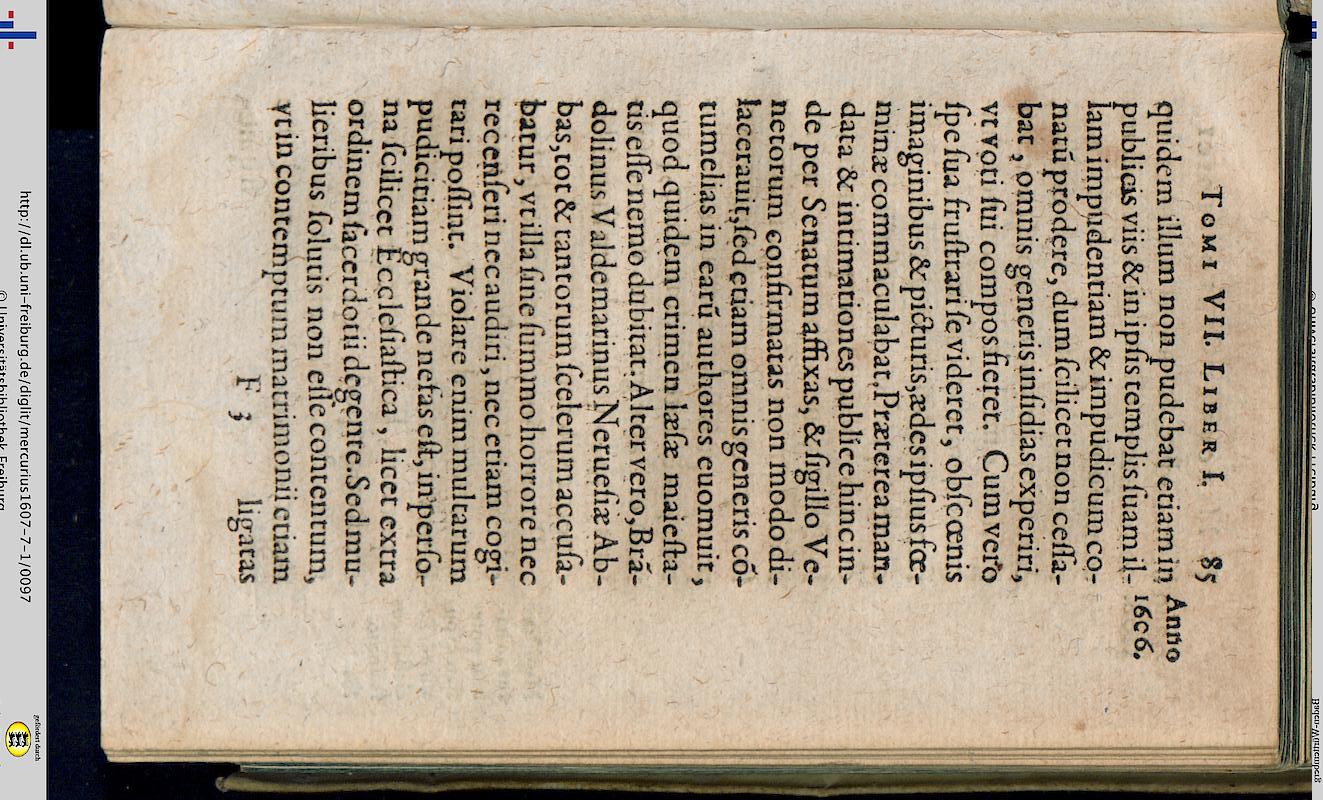 TOMI VII. LIBER I. 85
quidem illum non pudebat etiam in Anno
publicis viis & in ipsis templis suam il- 16c6.
lam impudentiam & impudicum co-
natū prodere, dum scilicet non cessa-
bat, omnis generis insidias experiri,
vt voti sui compos fieret. Cum vero
spe sua frustrari se videret, obscœnis
imaginibus & picturis, ædes ipsius fœ-
minæ commaculabat. Præterea man-
data & intimationes publice hinc in-
de per Senatum affixas, & sigillo Ve-
netorum confirmatas non modo di-
lacerauit, sed etiam omnis generis cō-
tumelias in earū authores euomuit,
quod quidem crimen læsæ maiesta-
tis esse nemo dubitat. Alter vero, Brā-
dolinus Valdemarinus Neruesiæ Ab-
bas, tot & tantorum scelerum accusa-
batur, vt illa sine summo horrore nec
recenseri nec audiri, nec etiam cogi-
tari possint. Violare enim multarum
pudicitiam grande nefas est, in perso-
na scilicet Ecclesiastica, licet extra
ordinem sacerdotii degente. Sed mu-
lieribus solutis non esse contentum,
vt in contemptum matrimonii etiam
F 3 ligatas
http://dl.ub.uni-freiburg.de/diglit/mercurius1607-7-1/0097
© Universitätsbibliothek Freiburg
gefördert durch